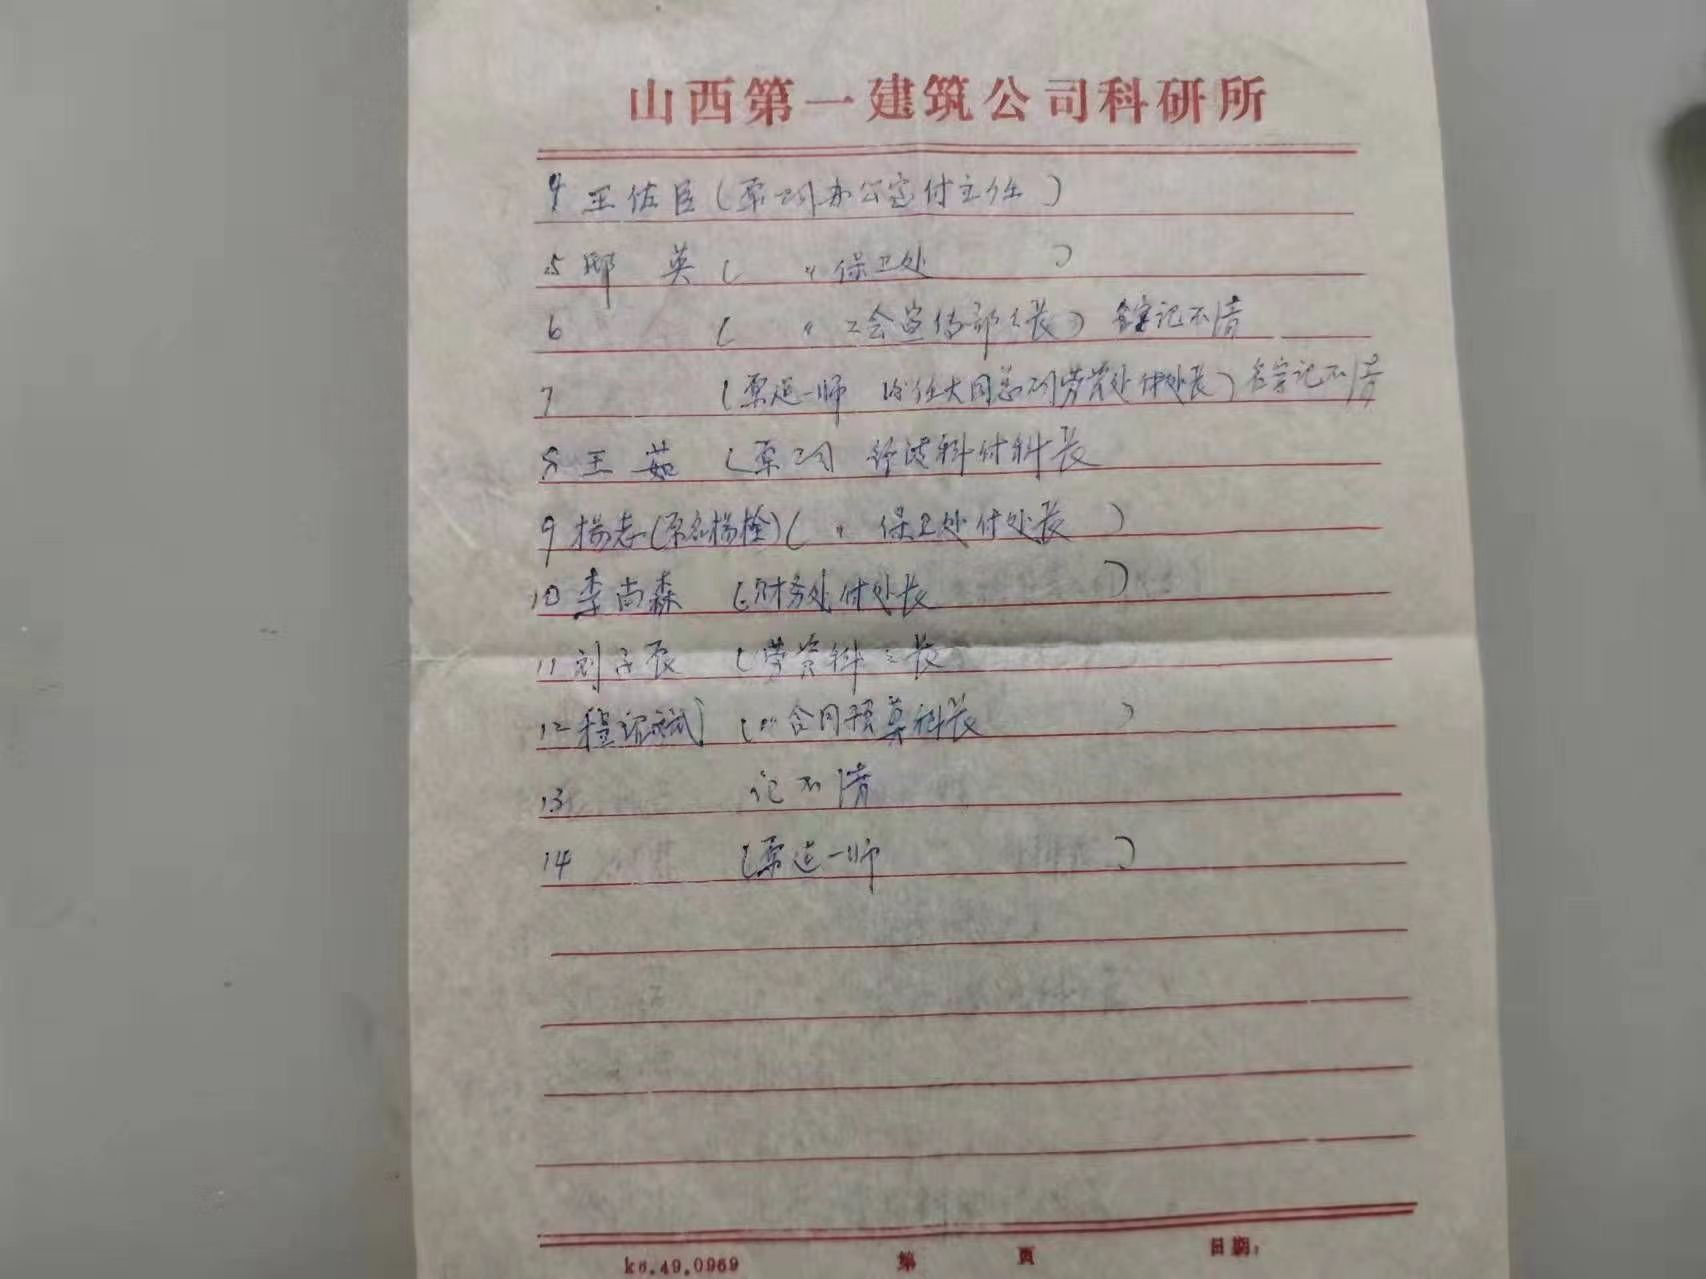 山西第一建筑公司科研所
4 王佐臣(原公司办公室付主任)
5 邢 英( 〃 保卫处 )
6 ( 〃 工会宣传部部长) 名字记不清
7 (原建一师 后任大同总公司劳资处付处长) 名字记不清
8 王 茹 (原公司 经济科付科长
9 杨志(原名杨栓)( 〃 保卫处付处长 )
10 李尚森 (财务处付处长 )
11 刘 (劳资科科长
12 程 (〃 合同预算科长 )
13 记不清
14 (原建一师 )
第 页 日期: